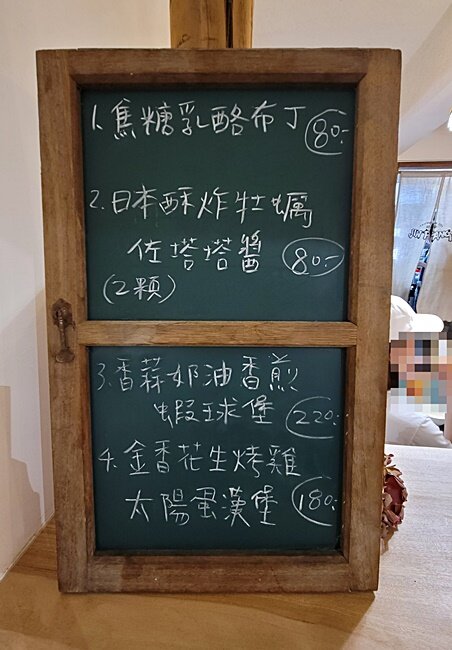 1.焦糖乳酪布丁 80.-
2.日本酥炸牡蠣
佐塔塔醬 80.-
(2顆)
3.香蒜奶油香煎
蝦球堡 220.-
4.金香花生烤雞
太陽蛋漢堡 180.-